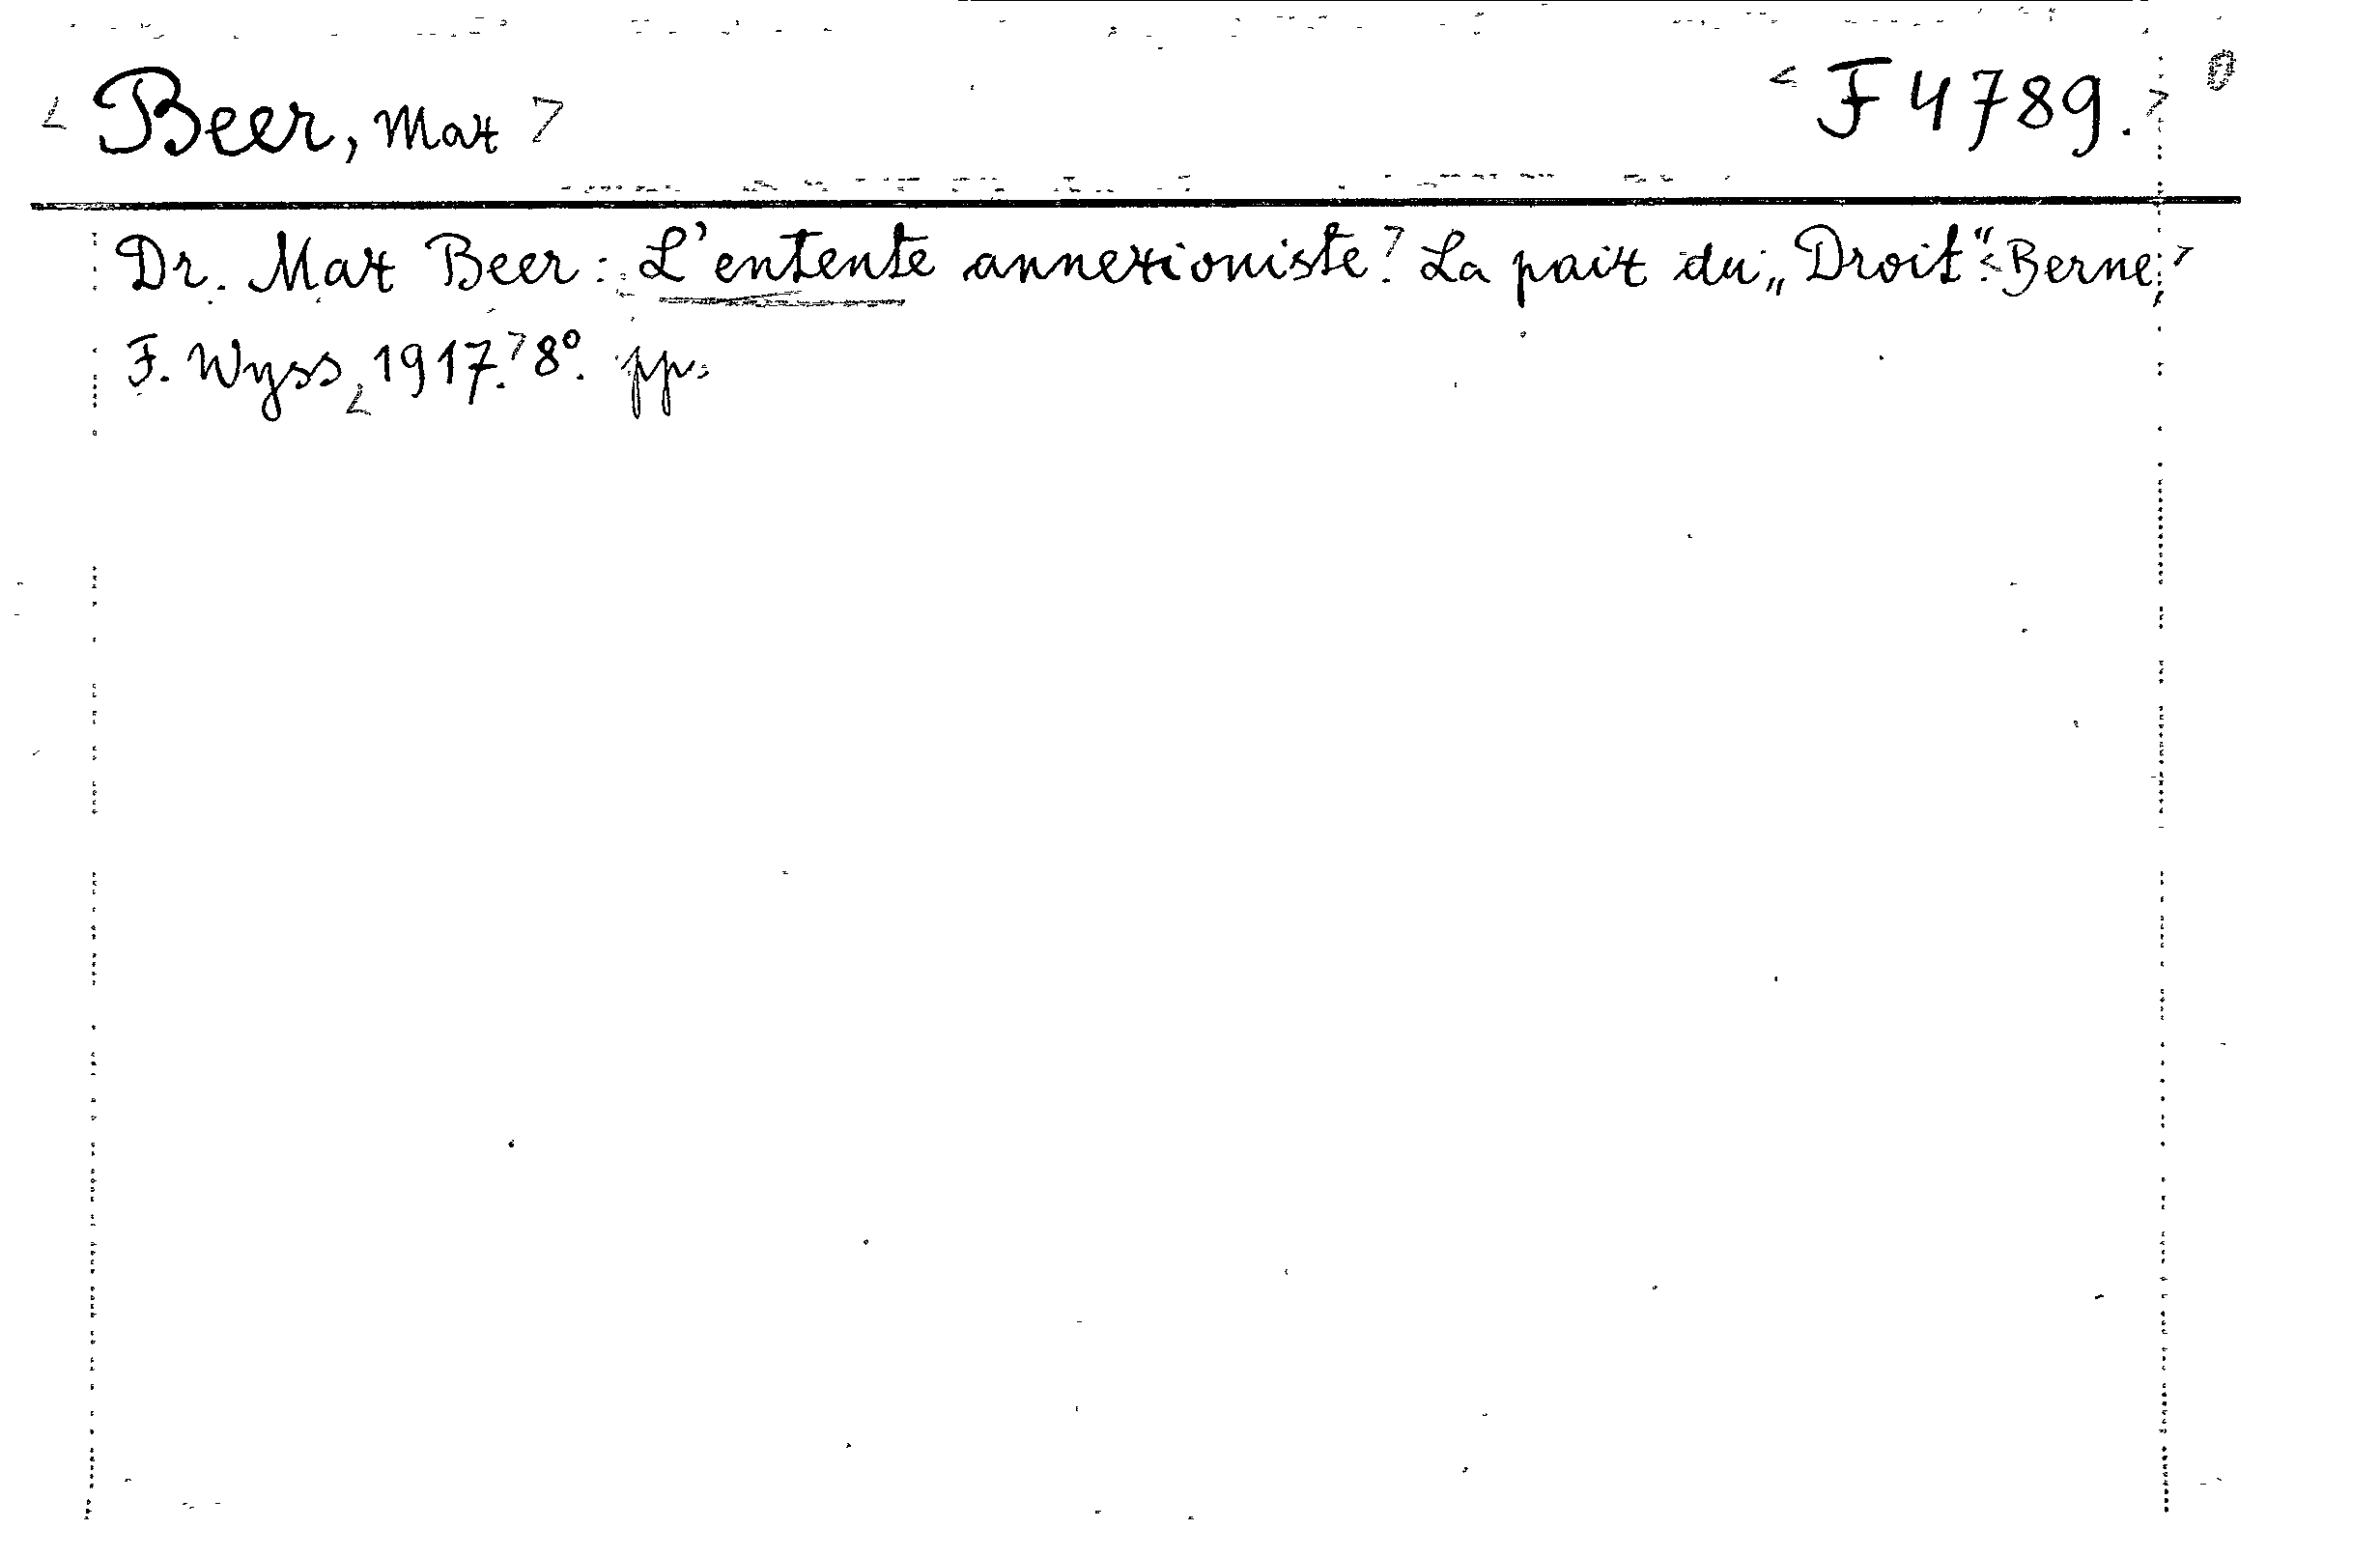 < Beer, Max > < F 4789. > 0
Dr. Max Beer: L'entente annexioniste? La paix du „Droit“. < Berne, >
F. Wyss, < 1917. > 8°. pp.